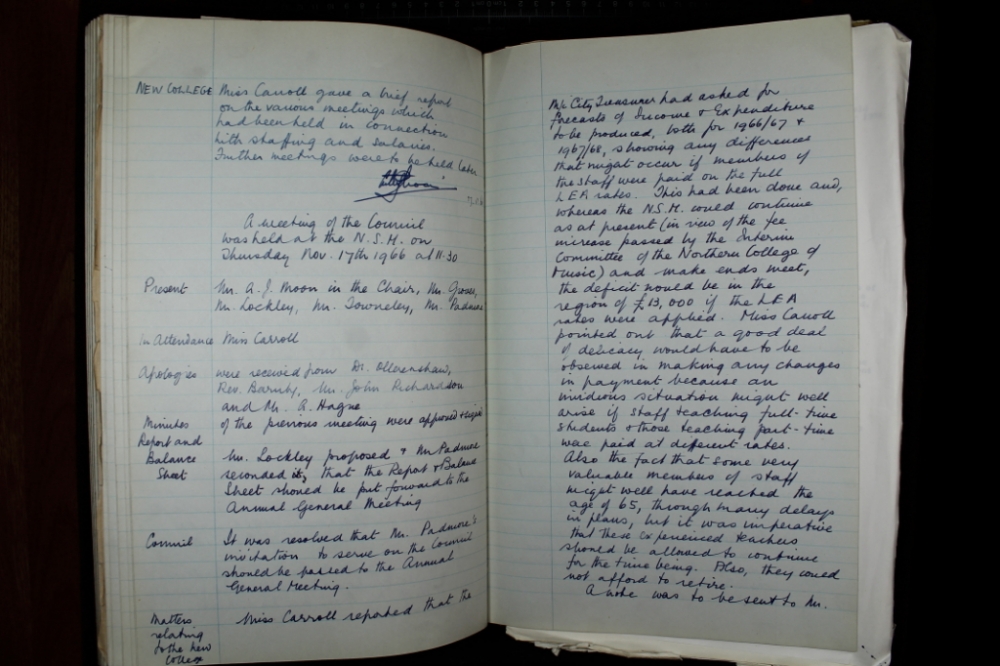 NEW COLLEGE Miss Carroll gave a brief report
on the various meetings which
had been held in connection
with staffing and salaries.
Further meetings were to be held later
A meeting of the Council
was held at the N.S.M. on
Thursday Nov. 17th 1966 at 11.30
Present Mr. A.J. Moon in the Chair, Mr. Groser,
Mr. Lockley, Mr. Towneley, Mr. Padmore
In Attendance Miss Carroll
Apologies were received from Dr. Ollerenshaw,
Rev. Barnby, Mr. John Richardson
and Mr. R. Hague
Minutes of the previous meeting were approved & signed
Report and
Balance
Sheet
Mr. Lockley proposed & Mr Padmore
seconded it, that the Report & Balance
Sheet should be put forward to the
Annual General Meeting
Council It was resolved that Mr. Padmore's
invitation to serve on the Council
should be passed to the Annual
General Meeting.
Matters
relating
to the new
College
Miss Carroll reported that the
M/c City Treasurer had asked for
forecasts of Income & Expenditure
to be produced, both for 1966/67 &
1967/68, showing any differences
that might occur if members of
the staff were paid on the full
L E A rates. This had been done and,
whereas the N.S.M. could continue
as at present (in view of the fee
increase passed by the Interim
Committee of the Northern College of
Music) and make ends meet,
the deficit would be in the
region of £13,000 if the L E A
rates were applied. Miss Carroll
pointed out that a good deal
of delicacy would have to be
observed in making any changes
in payment because an
invidious situation might well
arise if staff teaching full-time
students & those teaching part-time
were paid at different rates.
Also the fact that some very
valuable members of staff
might well have reached the
age of 65, through many delays
in plans, but it was imperative
that these experienced teachers
should be allowed to continue
for the time being. Also, they could
not afford to retire.
A note was to be sent to Mr.